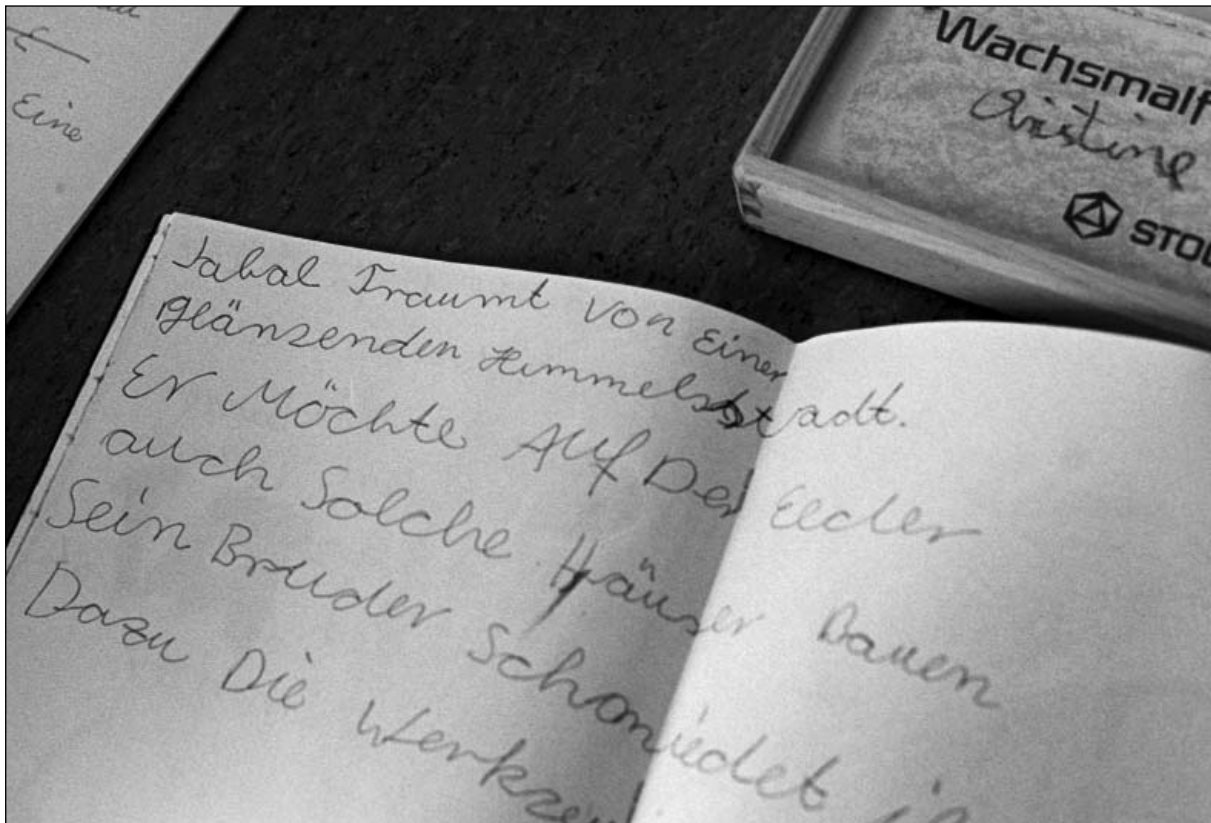 Eine
Wachsmalf
Christine
STOC
Jabal Traumt von Einer
glänzenden Himmelsstadt.
Er Möchte Auf Der Erder
auch Solche Häuser Bauen
Sein Bruder Schmiedet ih
Dazu Die Werkzeu